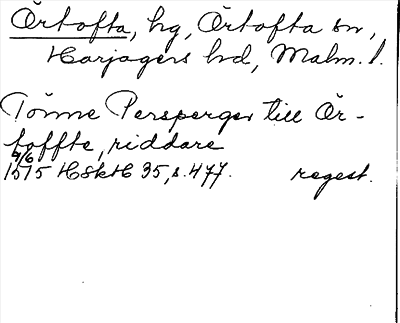 Örtofta, hg, Örtofta sn,
Harjagers hd, Malm. l.
Tönne Persperger till Ör-
toffte, riddare
4/6
1515 HSkH 35, s. 477. regest.